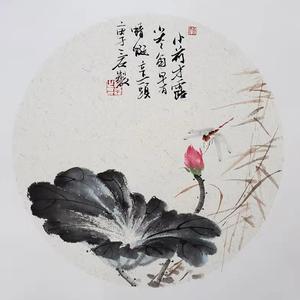 小荷才露
尖尖角早有
蜻蜓立上頭
庚子